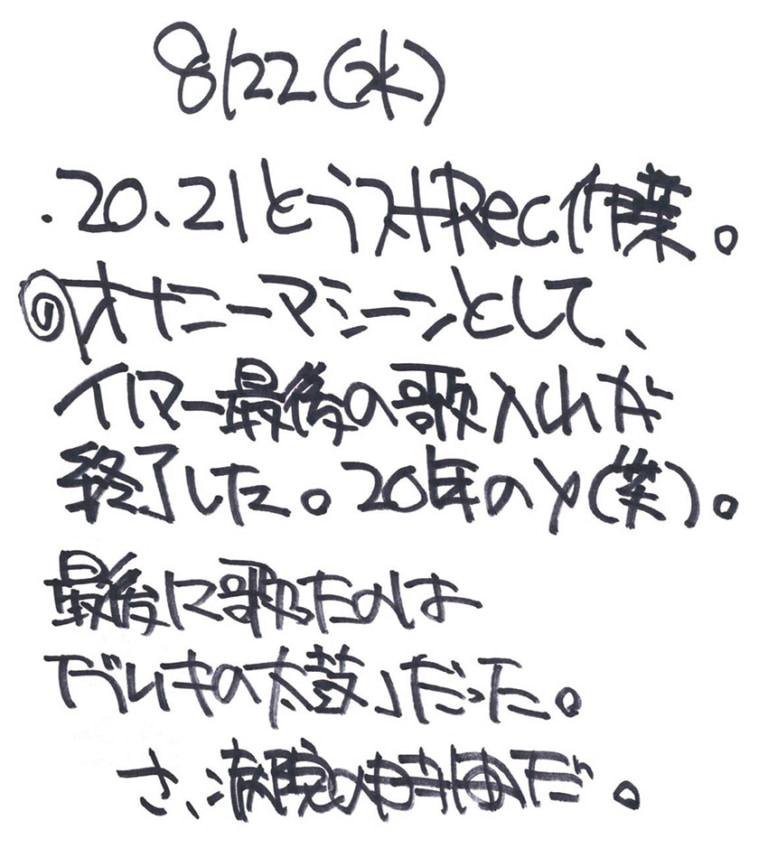 8/22(水)
・20、21とラストRec作業。
◎オナニーマシーンとして、
イノマー最後の歌入れが
終了した。20年のソ(笑)。
最後に歌たのは
「ブリキの太鼓」だった。
さ、病院の時間だ。